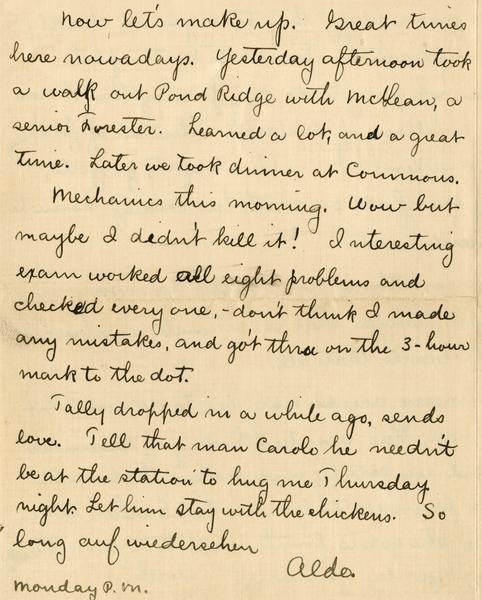 Now let's make up. Great times
here nowadays. Yesterday afternoon took
a walk out Pond Ridge with McHean, a
senior Forester. Learned a lot, and a great
time. Later we took dinner at Commons.
Mechanics this morning. Wow but
maybe I didn't kill it! Interesting
exam worked all eight problems and
checked every one, - don't think I made
any mistakes, and got thru on the 3-hour
mark to the dot.
Tally dropped in a while ago, sends
love. Tell that man Carolo he needn't
be at the station to hug me Thursday
night. Let him stay with the chickens. So
long auf wiedersehen
Aldo.
Monday P.M.